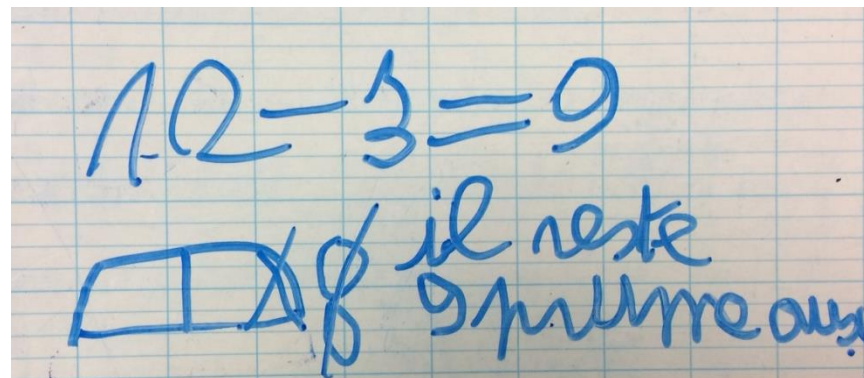 12-3=9
il reste
9 prume aux